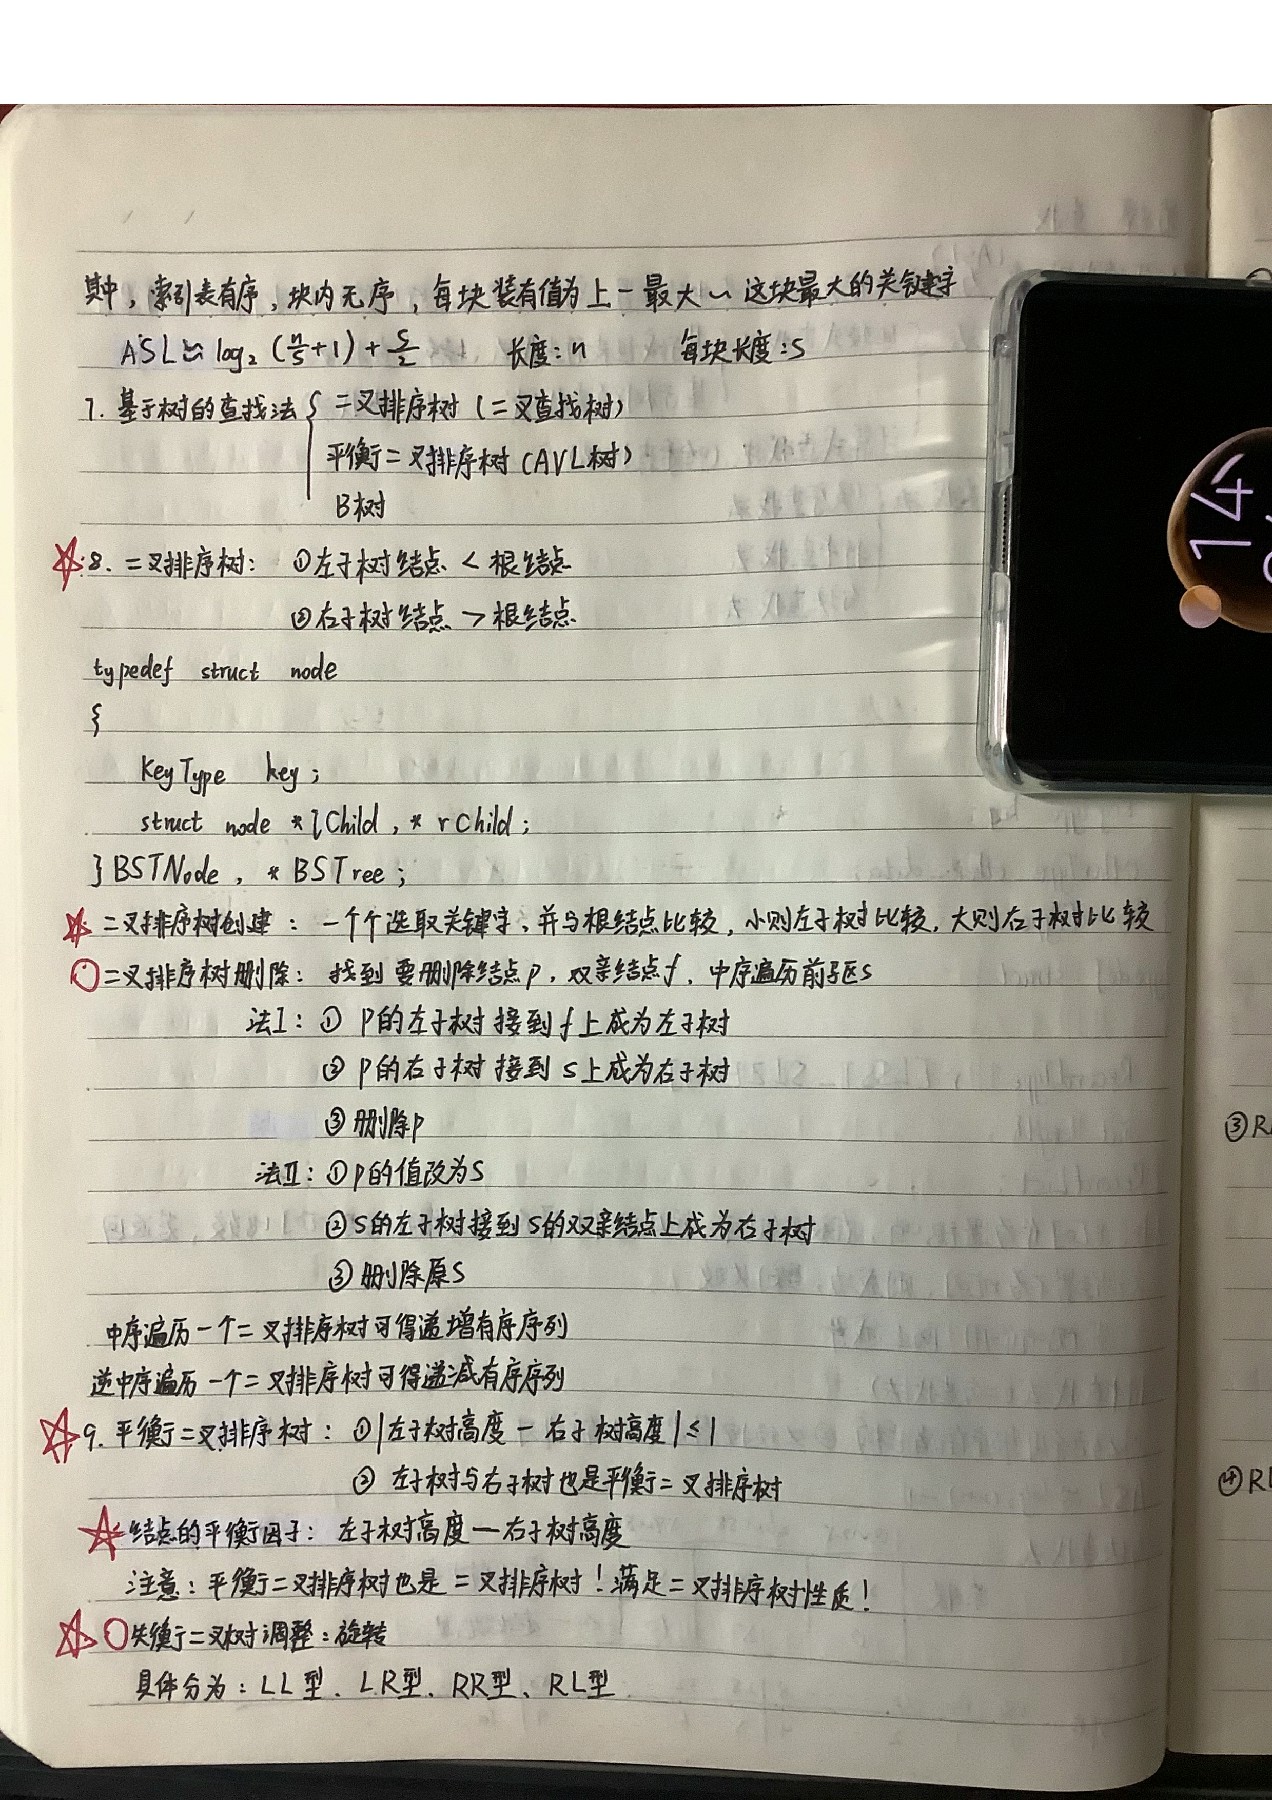 其中，索引表有序，块内无序，每块装有值为上一最大～这块最大的关键字
ASL≌log₂(n/s+1)+s/2 长度:n 每块长度:s
7. 基于树的查找法{二叉排序树(二叉查找树)
平衡二叉排序树(AVL树)
B树
☆8. 二叉排序树: ①左子树结点 < 根结点
②右子树结点 > 根结点
typedef struct node
{
KeyType key;
struct node *lChild, *rChild;
}BSTNode, *BSTree;
☆ 二叉排序树创建: 一个个选取关键字、并与根结点比较, 小则左子树比较, 大则右子树比较
○二叉排序树删除: 找到要删除结点p, 双亲结点f, 中序遍历前驱s
法I: ① p的左子树接到f上成为左子树
② p的右子树接到s上成为右子树
③ 删除p
法II: ①p的值改为s
②s的左子树接到s的双亲结点上成为右子树
③删除原s
中序遍历一个二叉排序树可得递增有序序列
逆中序遍历一个二叉排序树可得递减有序序列
☆9. 平衡二叉排序树: ①|左子树高度 - 右子树高度|≤1
② 左子树与右子树也是平衡二叉排序树
☆结点的平衡因子: 左子树高度-右子树高度
注意: 平衡二叉排序树也是二叉排序树! 满足二叉排序树性质!
☆○失衡二叉树调整: 旋转
具体分为: LL型、LR型、RR型、RL型
14
③R
④R